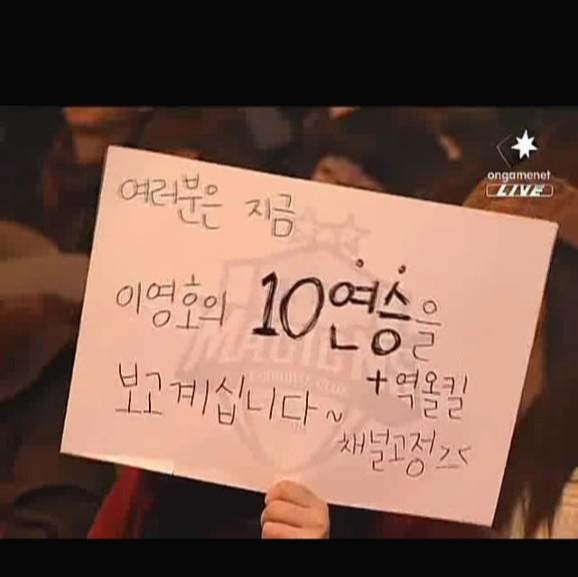 ongamenet
LIVE
여러분은 지금
이영호의 10연승을
+역올킬
보고계십니다~
채널고정ㄱㄱ
MAGICNs